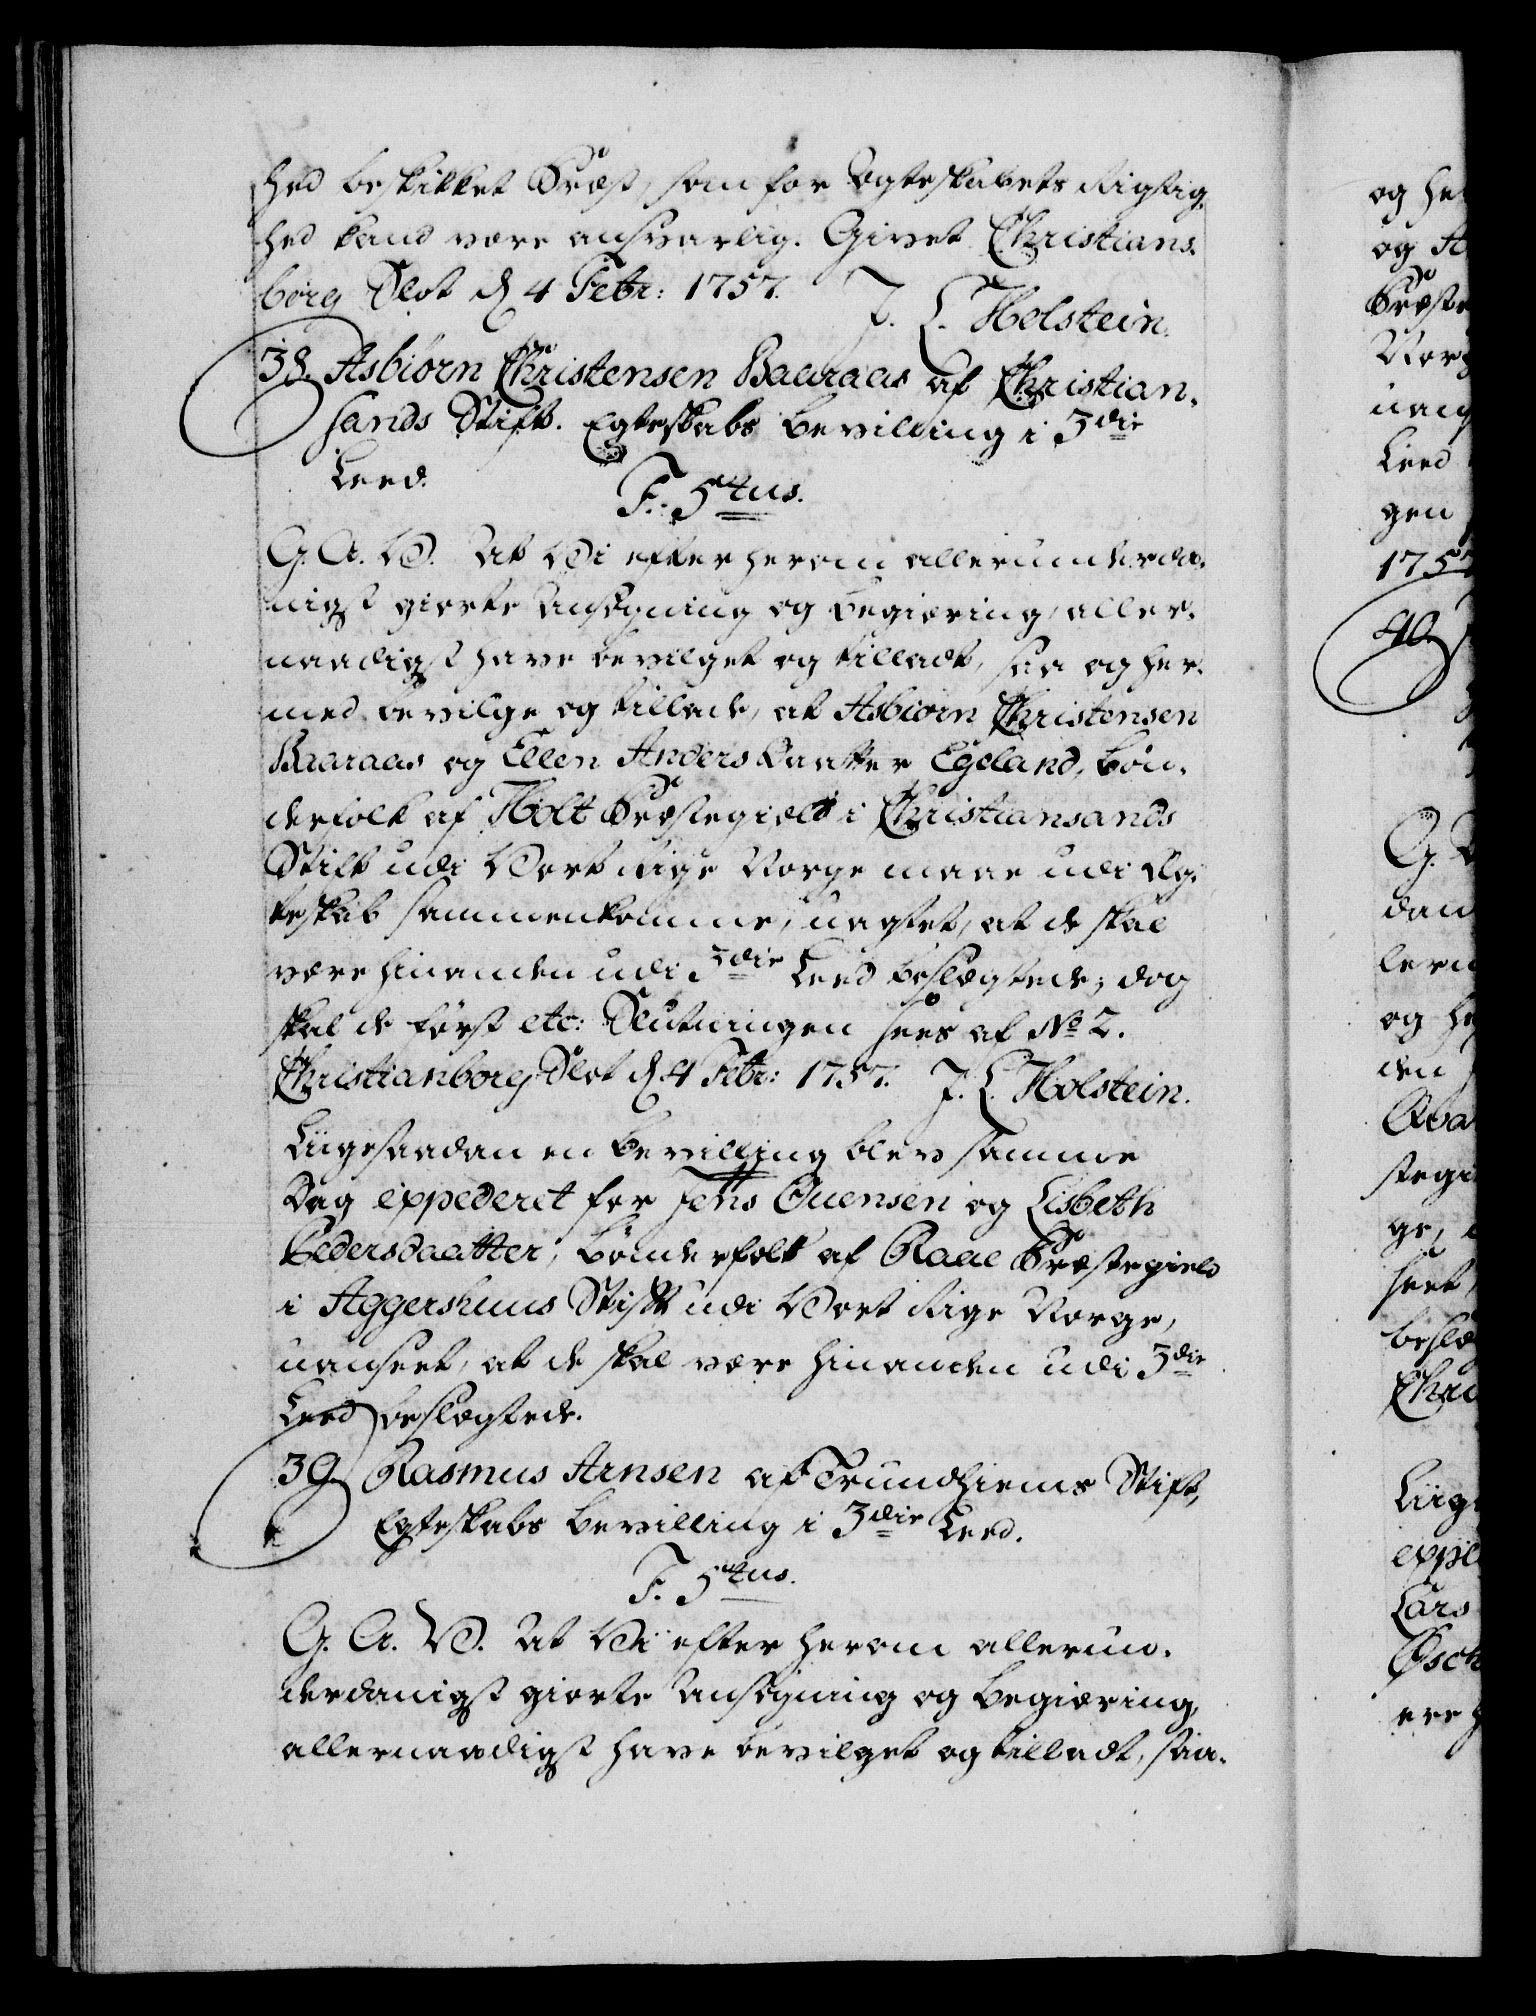 hed beskikket Præst, som for Ægteskabets Rigtig-
hed kand være ansvarlig. Givet Christians-
borg Slot d. 4 Febr: 1757. J. L. Holstein.
38. Asbiørn Christensen Baaraas af Christian-
sands Stift. Egteskabs Bevilling i 3die
Leed.
F. 5tus.
G. A. V. At Vi efter herom allerunderda-
nigst giorte Ansøgning og Begiæring, aller-
naadigst have bevilget og tilladt, saa og her-
med bevilge og tillade, at Asbiørn Christensen
Baaraas og Ellen Andersdaatter Egeland, Bøn-
derfolk af Holt Præstegield i Christiansands
Stift udi Vort Rige Norge maae udi Æg-
teskab sammenkomme, uagtet, at de skal
være hinanden udi 3die Leed beslægtede; dog
skal de først etc: Slutningen sees af No 2.
Christianborg Slot d. 4 Febr: 1757. J. L. Holstein.
Liigesaadan en Bevilling blev samme
Dag expederet for Jens Ouensen og Lisbeth
Pedersdaatter, Bønderfolk af Raae Præstegield
i Aggershuus Stift udi Vort Rige Norge,
uanseet, at de skal være hinanden udi 3die
Leed beslægtede.
39. Rasmus Arnsen af Trundhiems Stift,
Egteskabs Bevilling i 3die Leed.
F. 5tus.
G. A. V. At Vi efter herom allerun-
derdanigst giorte Ansøgning og Begiæring,
allernaadigst have bevilget og tilladt, saa-
og
og
Præste
Norg
uan
Leed
gen
1757
40.
G.
dan
lern
og
den
stegi
ge,
seet,
beslæ
Chri
Liig
expe
Lars
ere